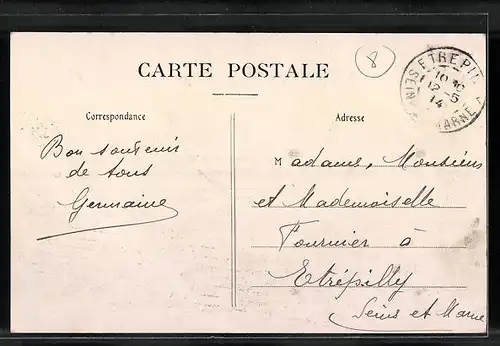 8
ETREPIL
SEINE MARNE
10
12-5
14
CARTE POSTALE
Correspondance
Adresse
Bon souvenir
de tous
Germaine
Madame, Monsieur
et Mademoiselle
Fournier à
Etrépilly
Seine et Marne